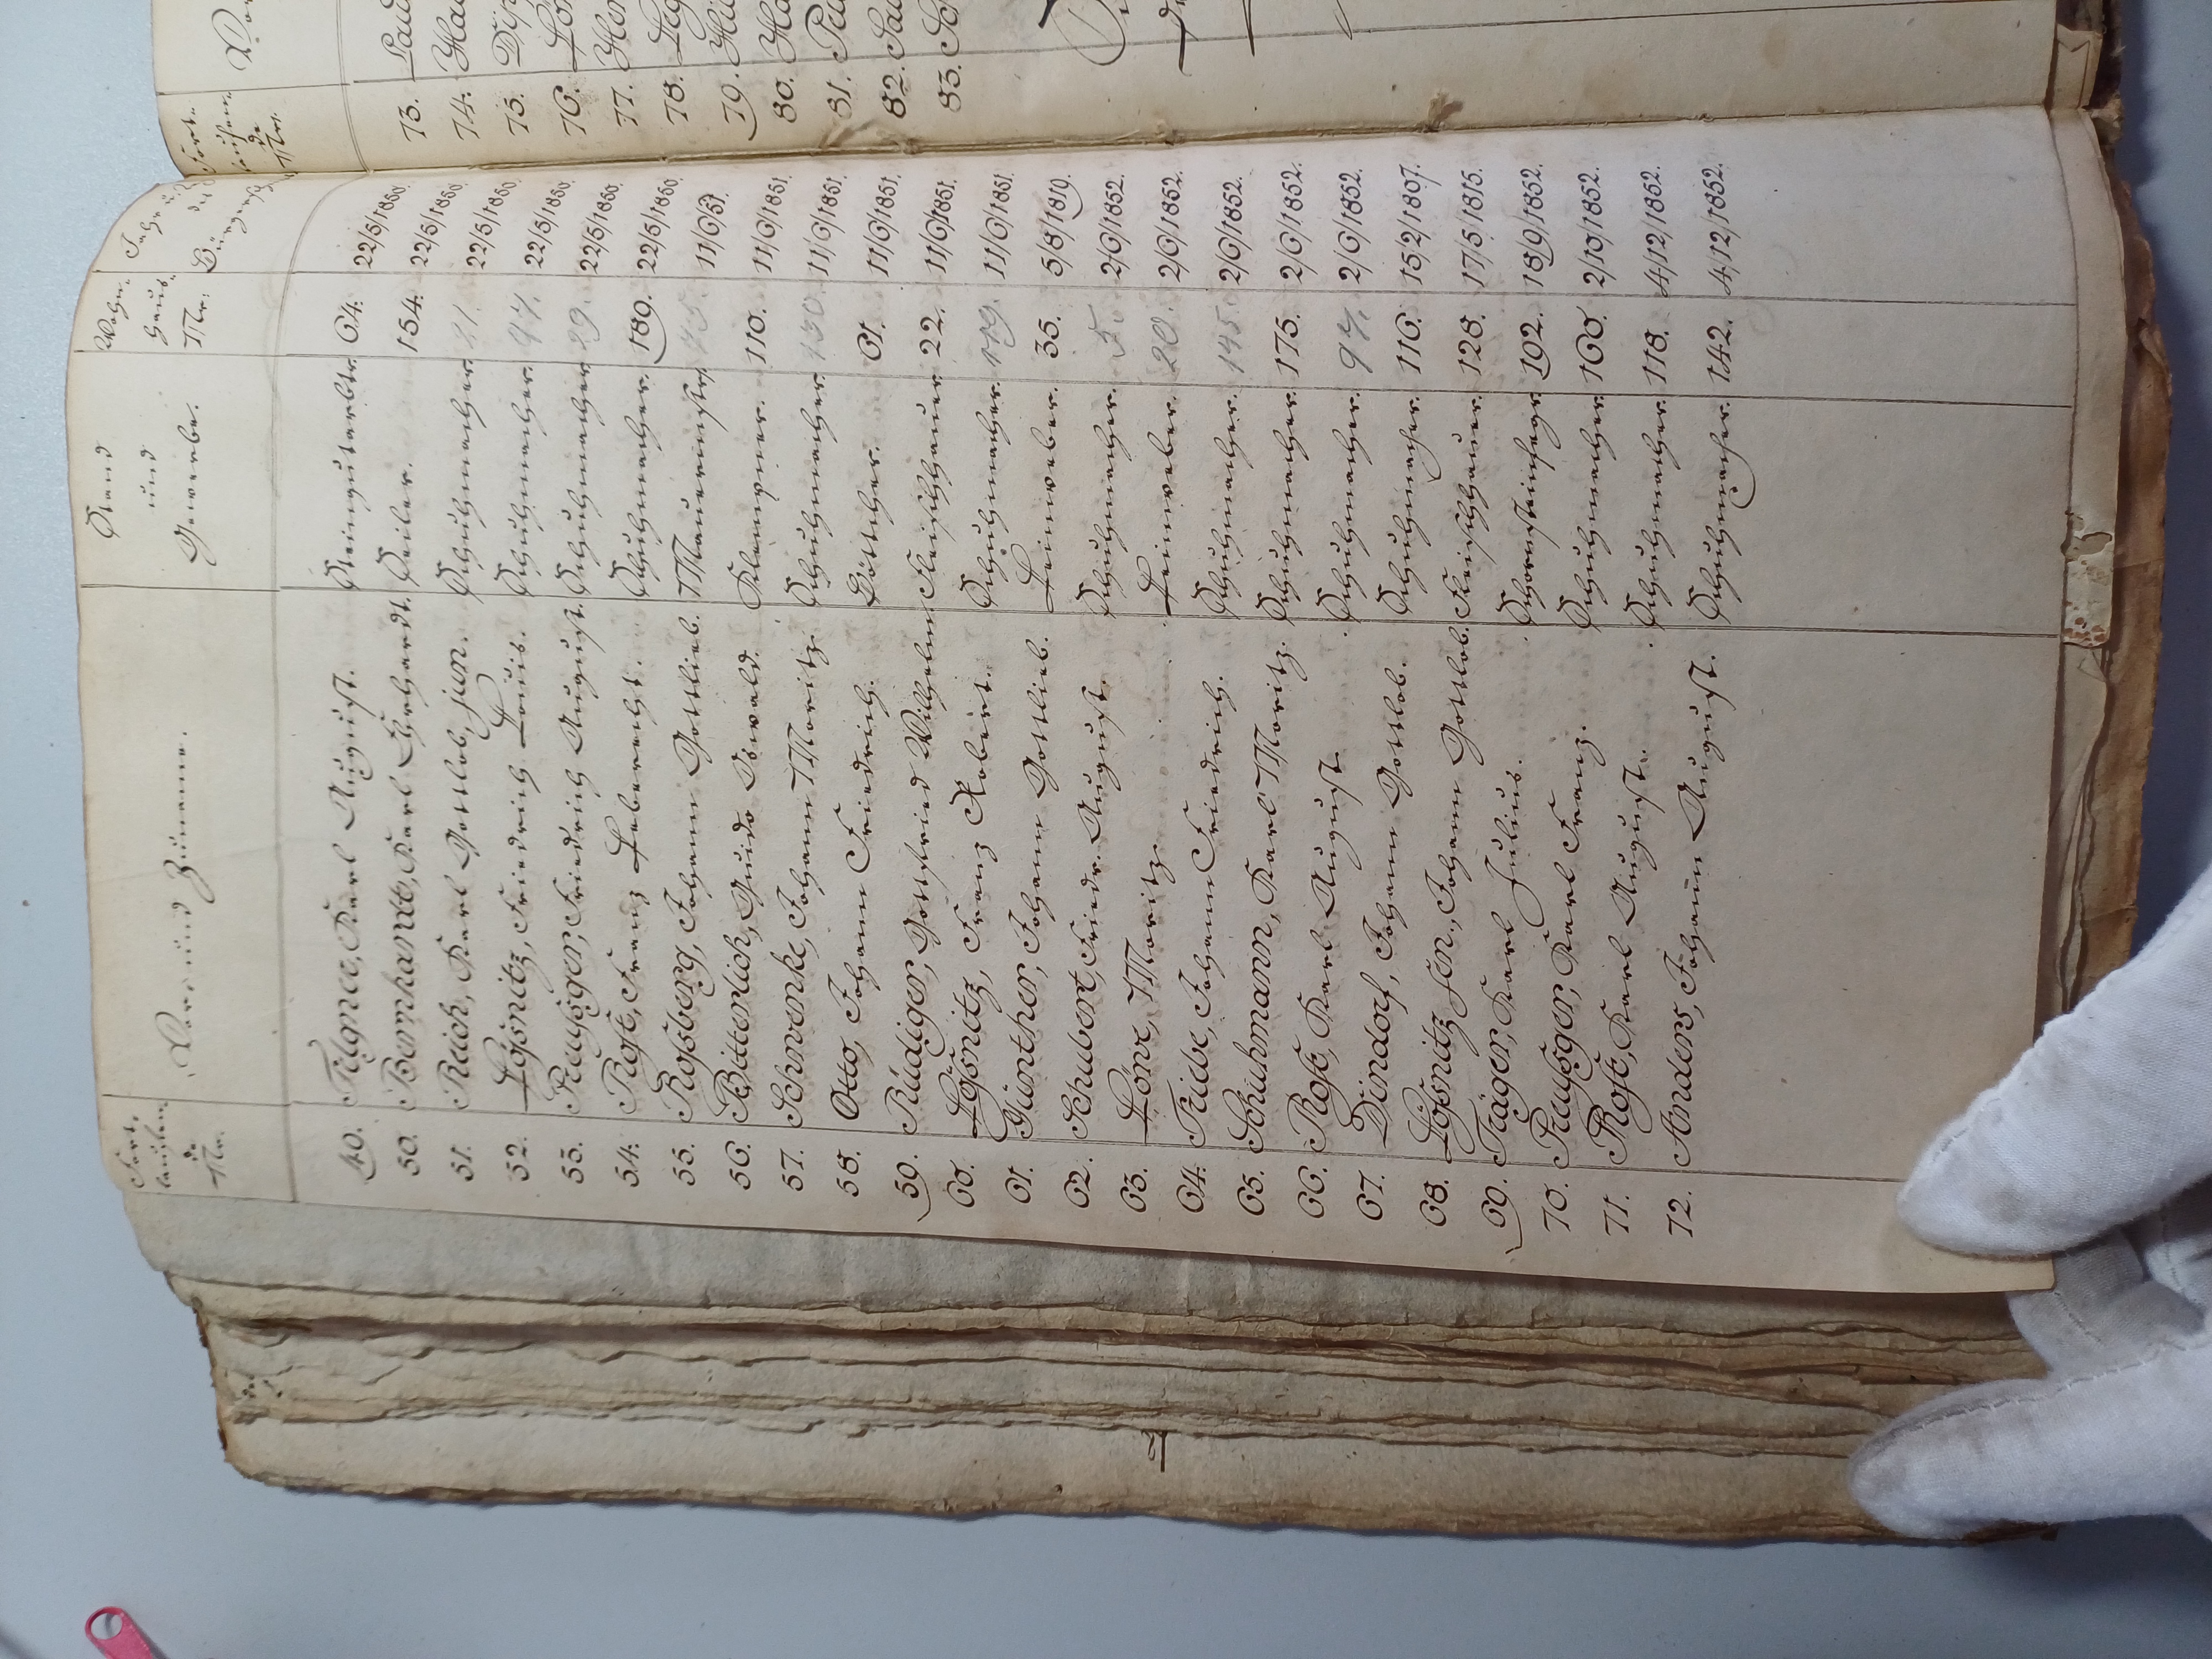 Fort-
laufen-
de
Nr.
Vor- und Zuname.
Stand
und
Gewerbe.
Wohn-
Haus-
Nr.
49. Karl August. 64. 22/5/1850.
50. Karl Gebhardt. Seiler. 154. 22/5/1850.
51. Reich, Karl Gottlob, jun. Schuhmacher 22/5/1850.
52. Lößnitz, Friedrich Louis. Schuhmacher. 97. 22/5/1850.
53. Preußger, Friedrich August. Schuhmacher 22/5/1850.
54. Rost, Franz Leberecht. Schuhmacher. 189. 22/5/1850.
55. Roßberg, Johann Gottlieb. Maurermstr. 11/6/51.
56. Bitterlich, Guido Oswald. Klempner. 110. 11/6/1851.
57. Schwenke, Johann Moritz. Schuhmacher 130. 11/6/1851.
58. Otto, Johann Friedrich. Böttcher. 61. 11/6/1851.
59. Rüdiger, Gottfried Wilhelm Fleischhauer 22. 11/6/1851.
60. Lößnitz, Franz Robert. Schuhmacher. 11/6/1851.
61. Günther, Johann Gottlieb. Leinweber. 35. 5/8/1819.
62. Schubert, Friedr. August. Schuhmacher. 5. 2/6/1852.
63. Moritz. Leinweber. 20. 2/6/1852.
64. Johann Friedrich. Schuhmacher. 145. 2/6/1852.
65. Schuhmann, Karl Moritz. Schuhmacher 175. 2/6/1852.
66. Rost, Karl August. Schuhmacher. 97. 2/6/1852.
67. Dindorf, Johann Gottlob. Schuhmacher. 116. 15/2/1807.
68. Lößnitz sen., Johann Gottlob. Fleischhauer. 128. 17/5/1815.
69. Träger, Karl Julius. Schornsteinfegr 192. 18/9/1852.
70. Preußger, Karl Franz. Schuhmacher 160. 2/10/1852.
71. Rost, Karl August. Schuhmacher 118. 4/12/1852.
72. Anders, Johann August. Schuhmacher. 142. 4/12/1852.
73.
74.
75.
76.
77.
78.
79.
80.
81.
82.
83.